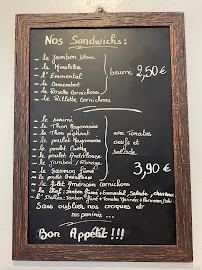 Nos Sandwichs:
~ le Jambon Blanc
~ le Mimolette
~ l'Emmental
~ le Camembert
~ le Rosette Cornichons
~ le Rillette Cornichons
beurre 2,50€
~ le surimi
~ le Thon Mayonnaise
~ le Thon piquant
~ le poulet Mayonnaise
~ le poulet Curry
~ le poulet
~ le Jambon/
~ le Saumon fumé
~ le poulet
avec Tomates
oeufs et
salade
3,90€
~ le Américain Cornichons
~ le Chef: Jambon Blanc + Emmental, Salade,
~ l'Italien: Jambon + Tomates
Sans oublier nos croques et
nos paninis ...
Bon Appétit!!!